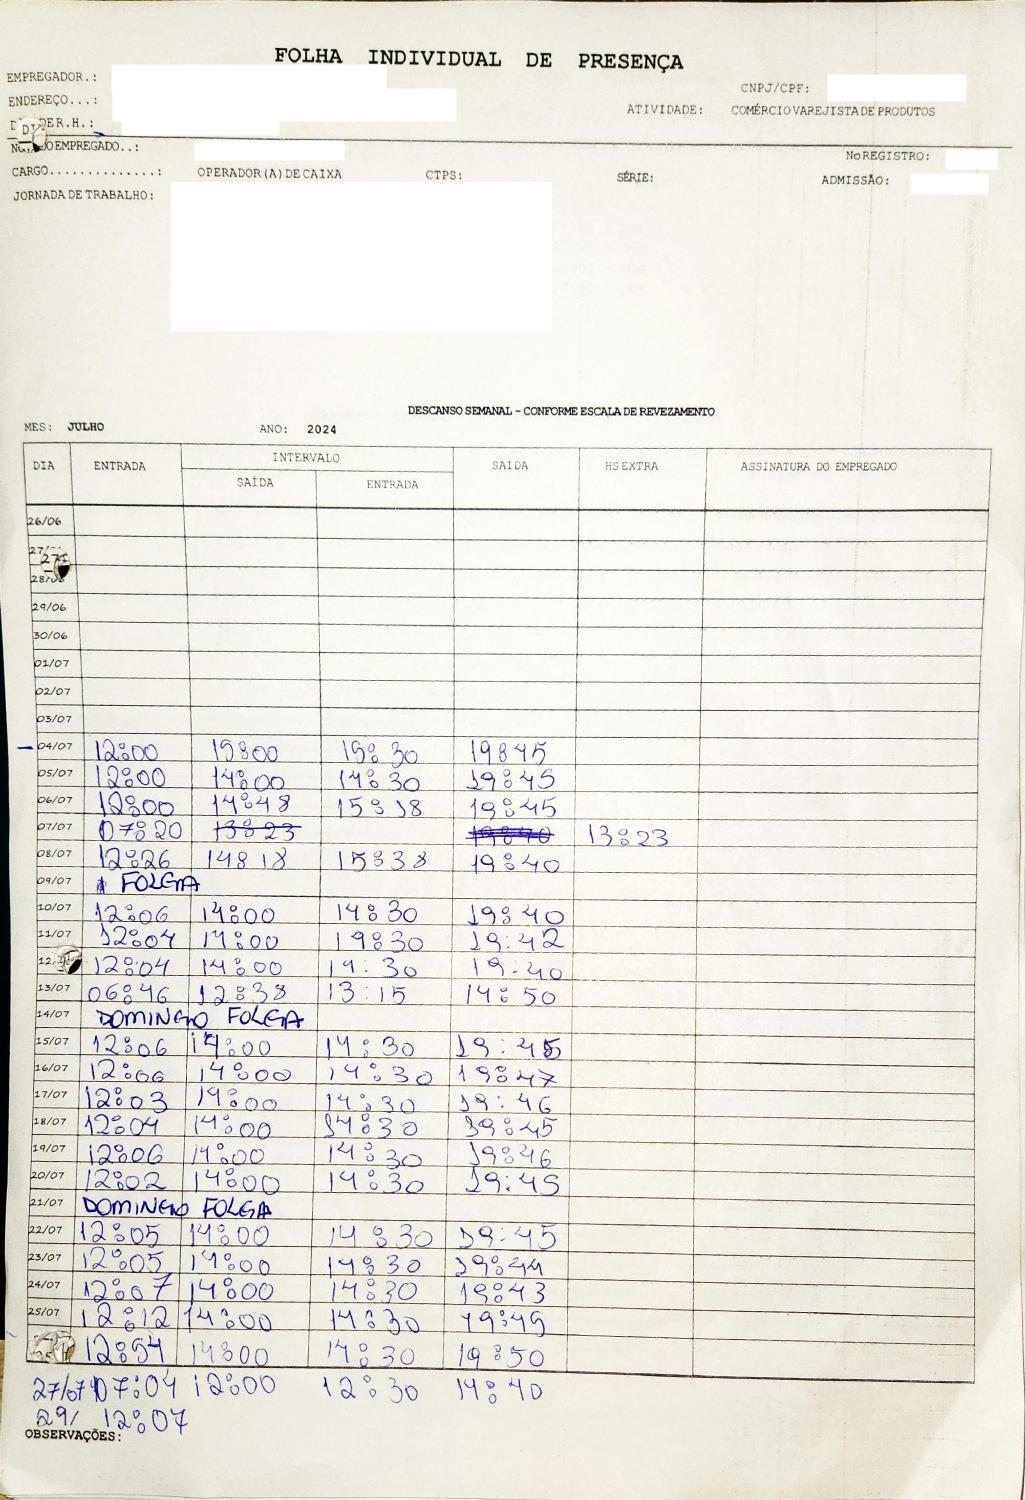 FOLHA INDIVIDUAL DE PRESENÇA
EMPREGADOR.:
CNPJ/CPF:
ENDEREÇO...:
ATIVIDADE: COMÉRCIO VAREJISTA DE PRODUTOS
DER.H.:
DO EMPREGADO..:
No REGISTRO:
CARGO..............: OPERADOR(A) DE CAIXA CTPS: SÉRIE: ADMISSÃO:
JORNADA DE TRABALHO:
DESCANSO SEMANAL - CONFORME ESCALA DE REVEZAMENTO
MES: JULHO ANO: 2024
DIA ENTRADA INTERVALO SAÍDA HS EXTRA ASSINATURA DO EMPREGADO
SAÍDA ENTRADA
26/06
27/
28/06
29/06
30/06
01/07
02/07
03/07
04/07 12:00 15:00 15:30 19:45
05/07 12:00 14:00 14:30 19:45
06/07 12:00 14:48 15:18 19:45
07/07 07:20 13:23 19:40 13:23
08/07 12:26 14:18 15:38 19:40
09/07 FOLGA
10/07 12:06 14:00 14:30 19:40
11/07 12:04 14:00 14:30 19:42
12/ 12:04 14:00 14:30 19:40
13/07 06:46 12:38 13:15 14:50
14/07 DOMINGO FOLGA
15/07 12:06 14:00 14:30 19:45
16/07 12:06 14:00 14:30 19:47
17/07 12:03 14:00 14:30 19:46
18/07 12:04 14:00 14:30 19:45
19/07 12:06 14:00 14:30 19:46
20/07 12:02 14:00 14:30 19:45
21/07 DOMINGO FOLGA
22/07 12:05 14:00 14:30 19:45
23/07 12:05 14:00 14:30 19:44
24/07 12:07 14:00 14:30 19:43
25/07 12:12 14:00 14:30 19:45
12:54 14:00 14:30 19:50
27/07 07:04 12:00 12:30 14:40
29/ 12:07
OBSERVAÇÕES: